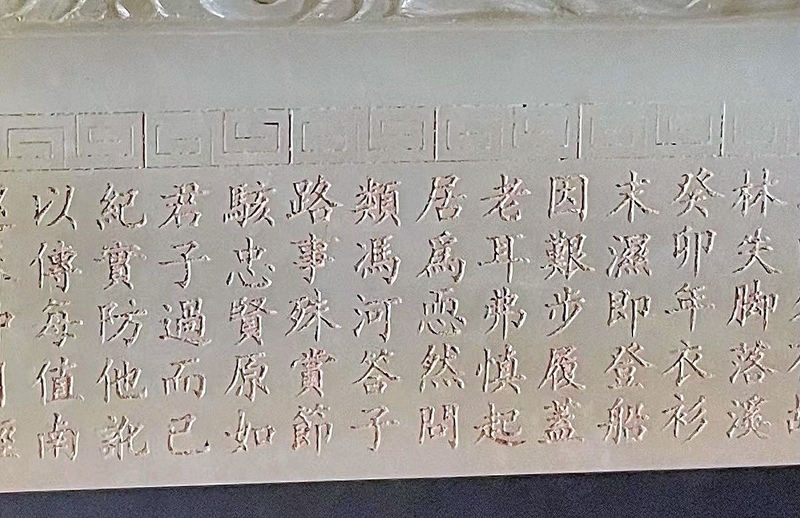 林失脚落溪
癸卯年衣衫
未濕即登船
因艱步履蓋
老耳弗慎起
居爲恧然問
類馮河答子
路事殊賞節
駭忠賢原如
君子過而已
紀實防他訛
以傳每值南